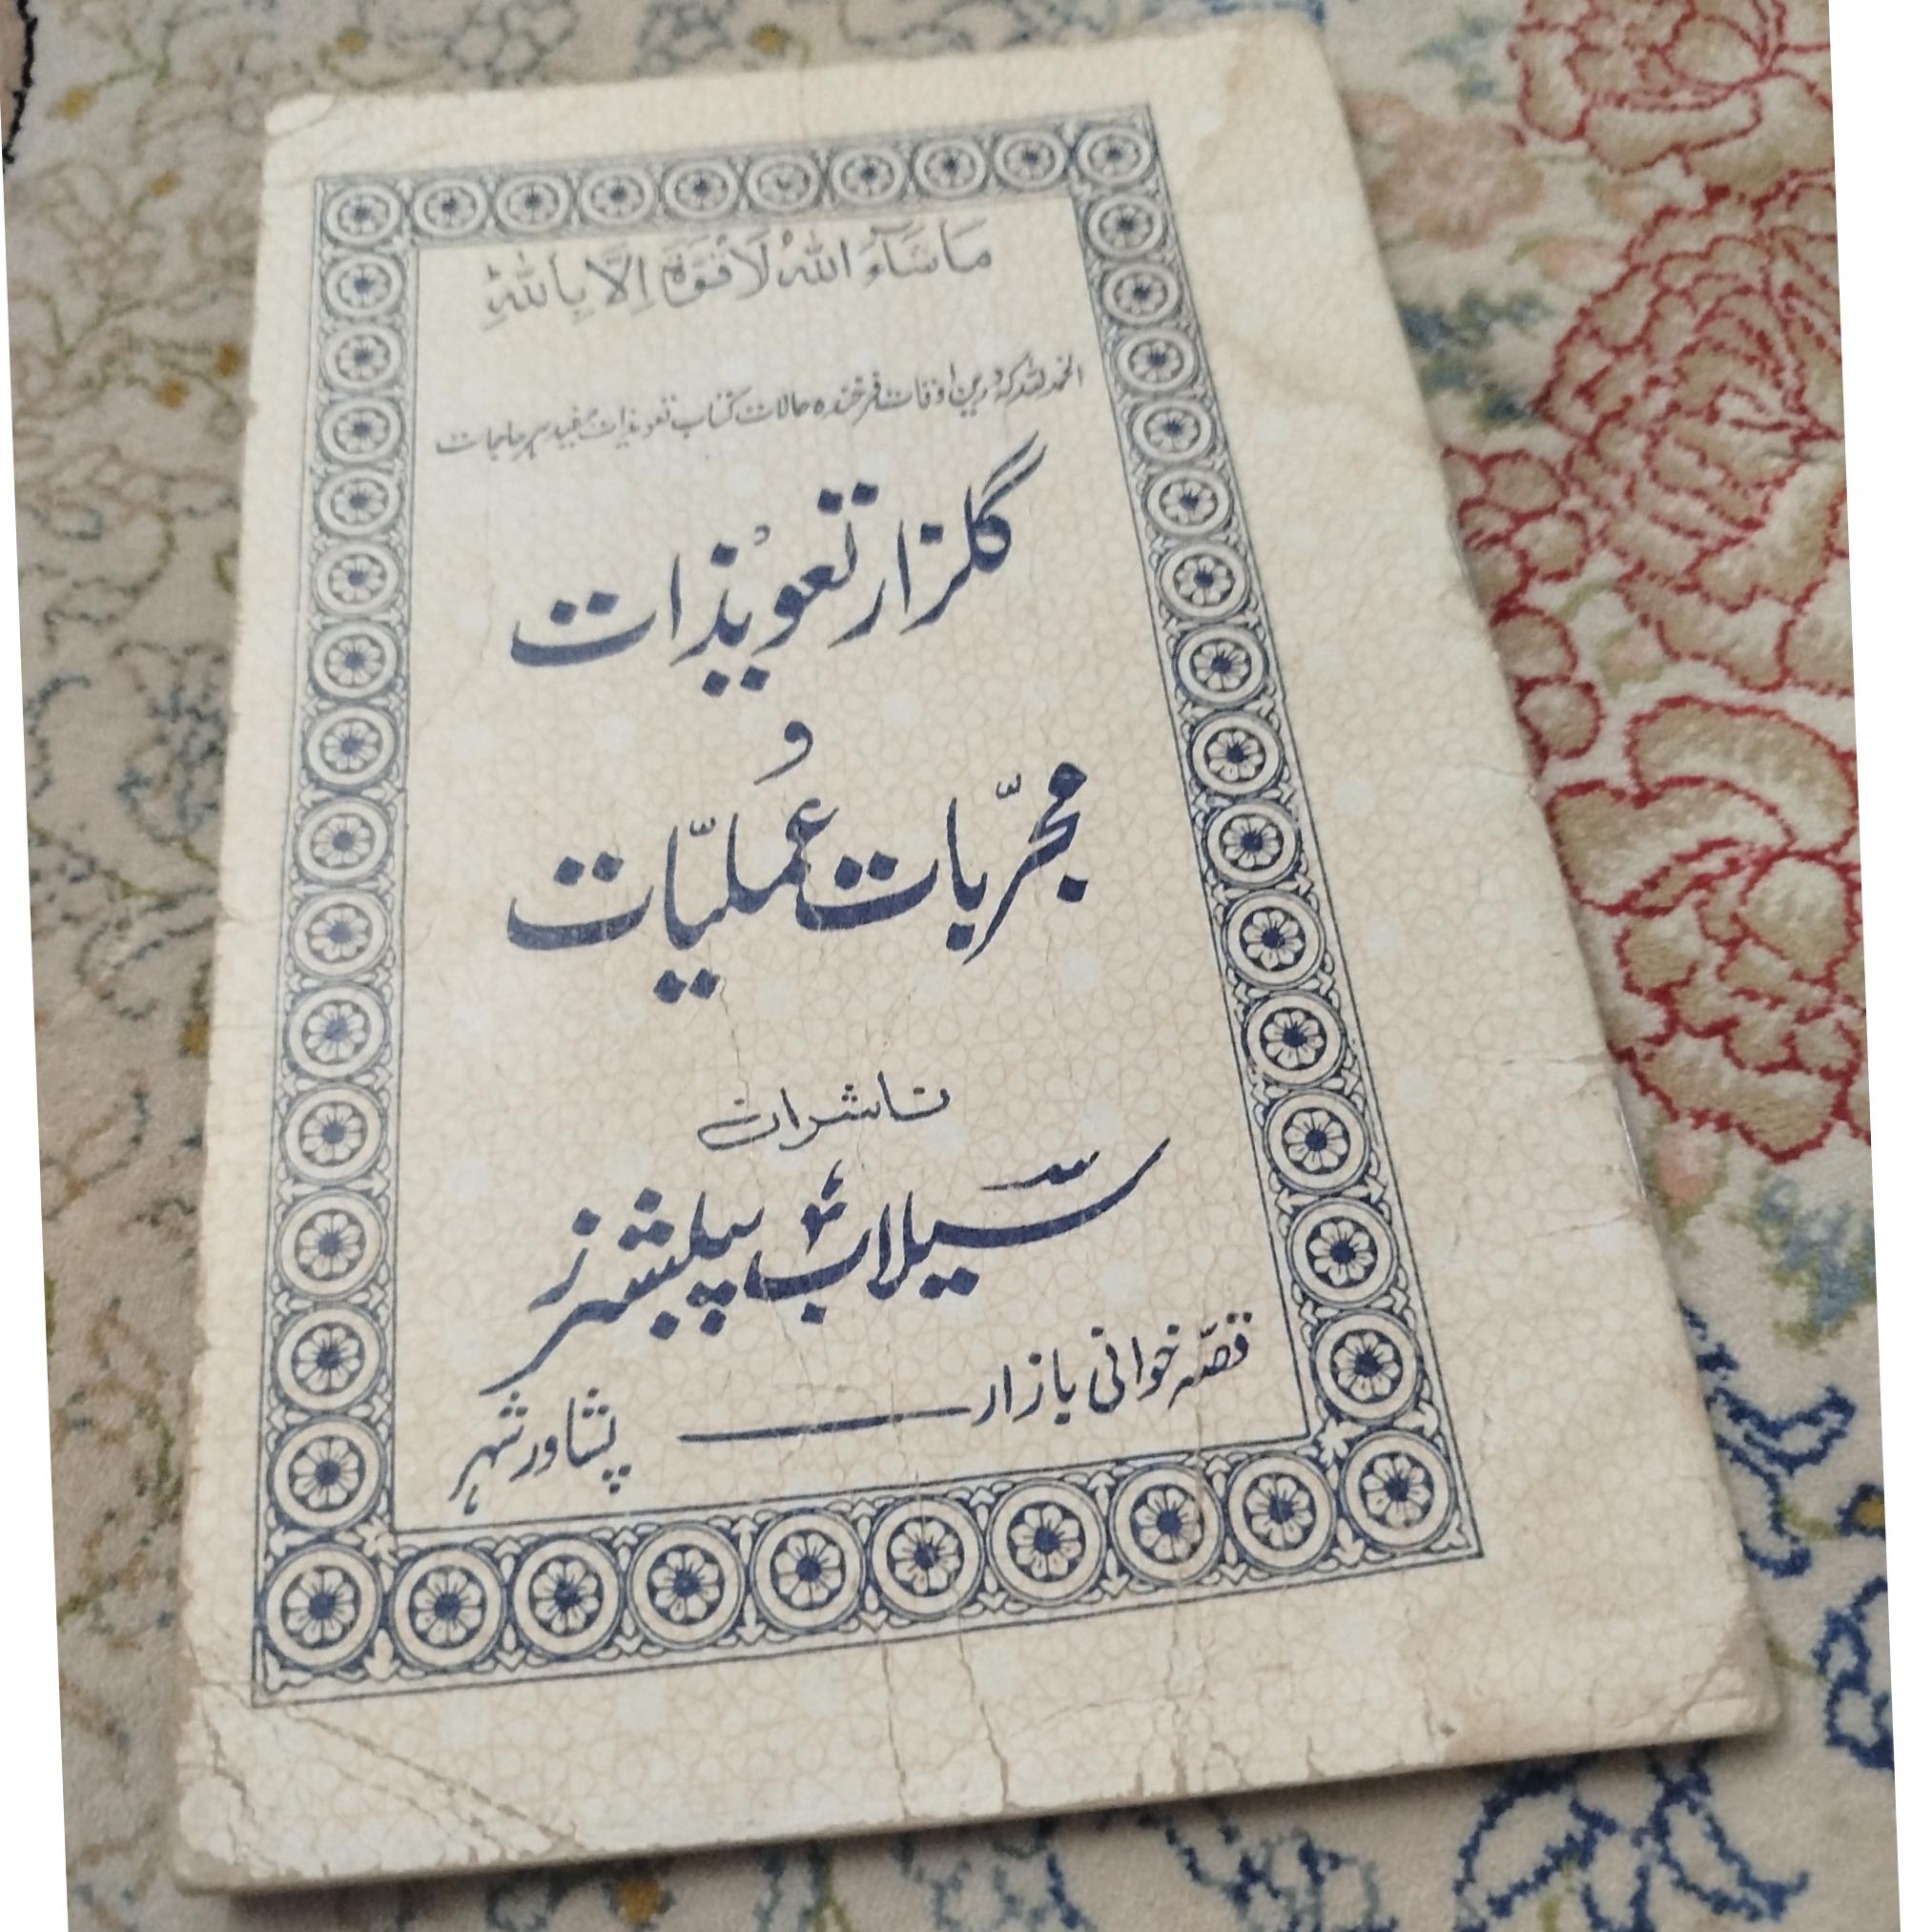 مَا شَآءَ اللهُ لَا قُوَّةَ اِلَّا بِاللهِ
الحمد للہ کہ درین اوقات فرخندہ حالات کتاب تعویذات مفید ہر حاجات
گلزار تعویذات
و
مجرّبات عملیّات
ناشران
سیلاب پبلشرز
قصّہ خوانی بازار ـــــ پشاور شہر